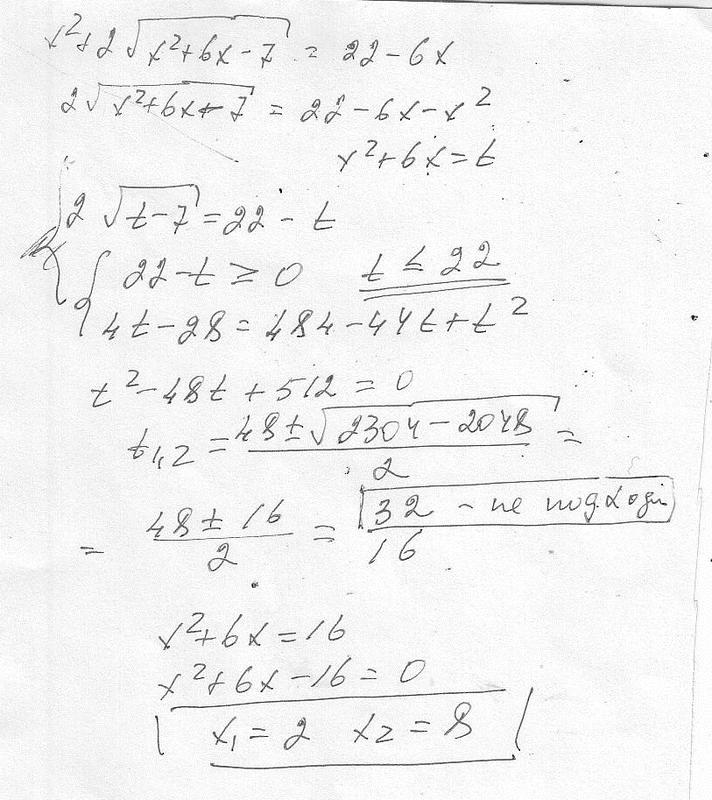 x²+2√(x²+6x-7) = 22-6x
2√(x²+6x-7) = 22-6x-x²
x²+6x=t
2√(t-7) = 22-t
22-t ≥ 0 t ≤ 22
4t-28=484-44t+t²
t²-48t+512=0
t₁,₂ = (48±√(2304-2048))/2 =
= (48±16)/2 = 32 - не подходит
16
x²+6x=16
x²+6x-16=0
x₁=2 x₂=8